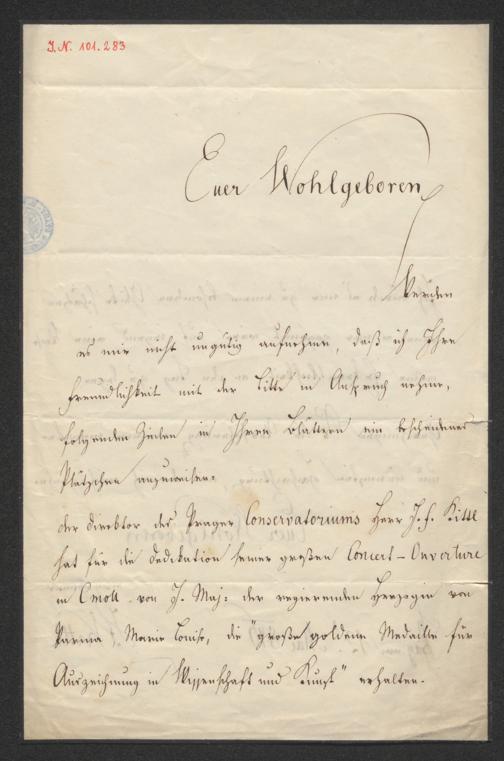 I.N. 101.283
Euer Wohlgeboren
werden
es mir nicht ungütig aufnehmen, daß ich Ihre
Freundlichkeit mit der Bitte in Anspruch nehme,
folgenden Zeilen in Ihren Blättern ein bescheidenes
Plätzchen anzuweisen.
Der Direktor des Prager Conservatoriums Herr J. F. Kittl
hat für die Dedikation seiner großen Concert-Ouverture
in Cmoll von I. Maj: der regierenden Herzogin von
Parma Marie Louise, die "große goldene Medaille für
Auszeichnung in Wissenschaft und Kunst" erhalten.